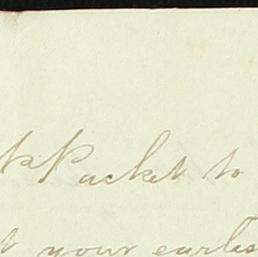 Packet to
your earlies